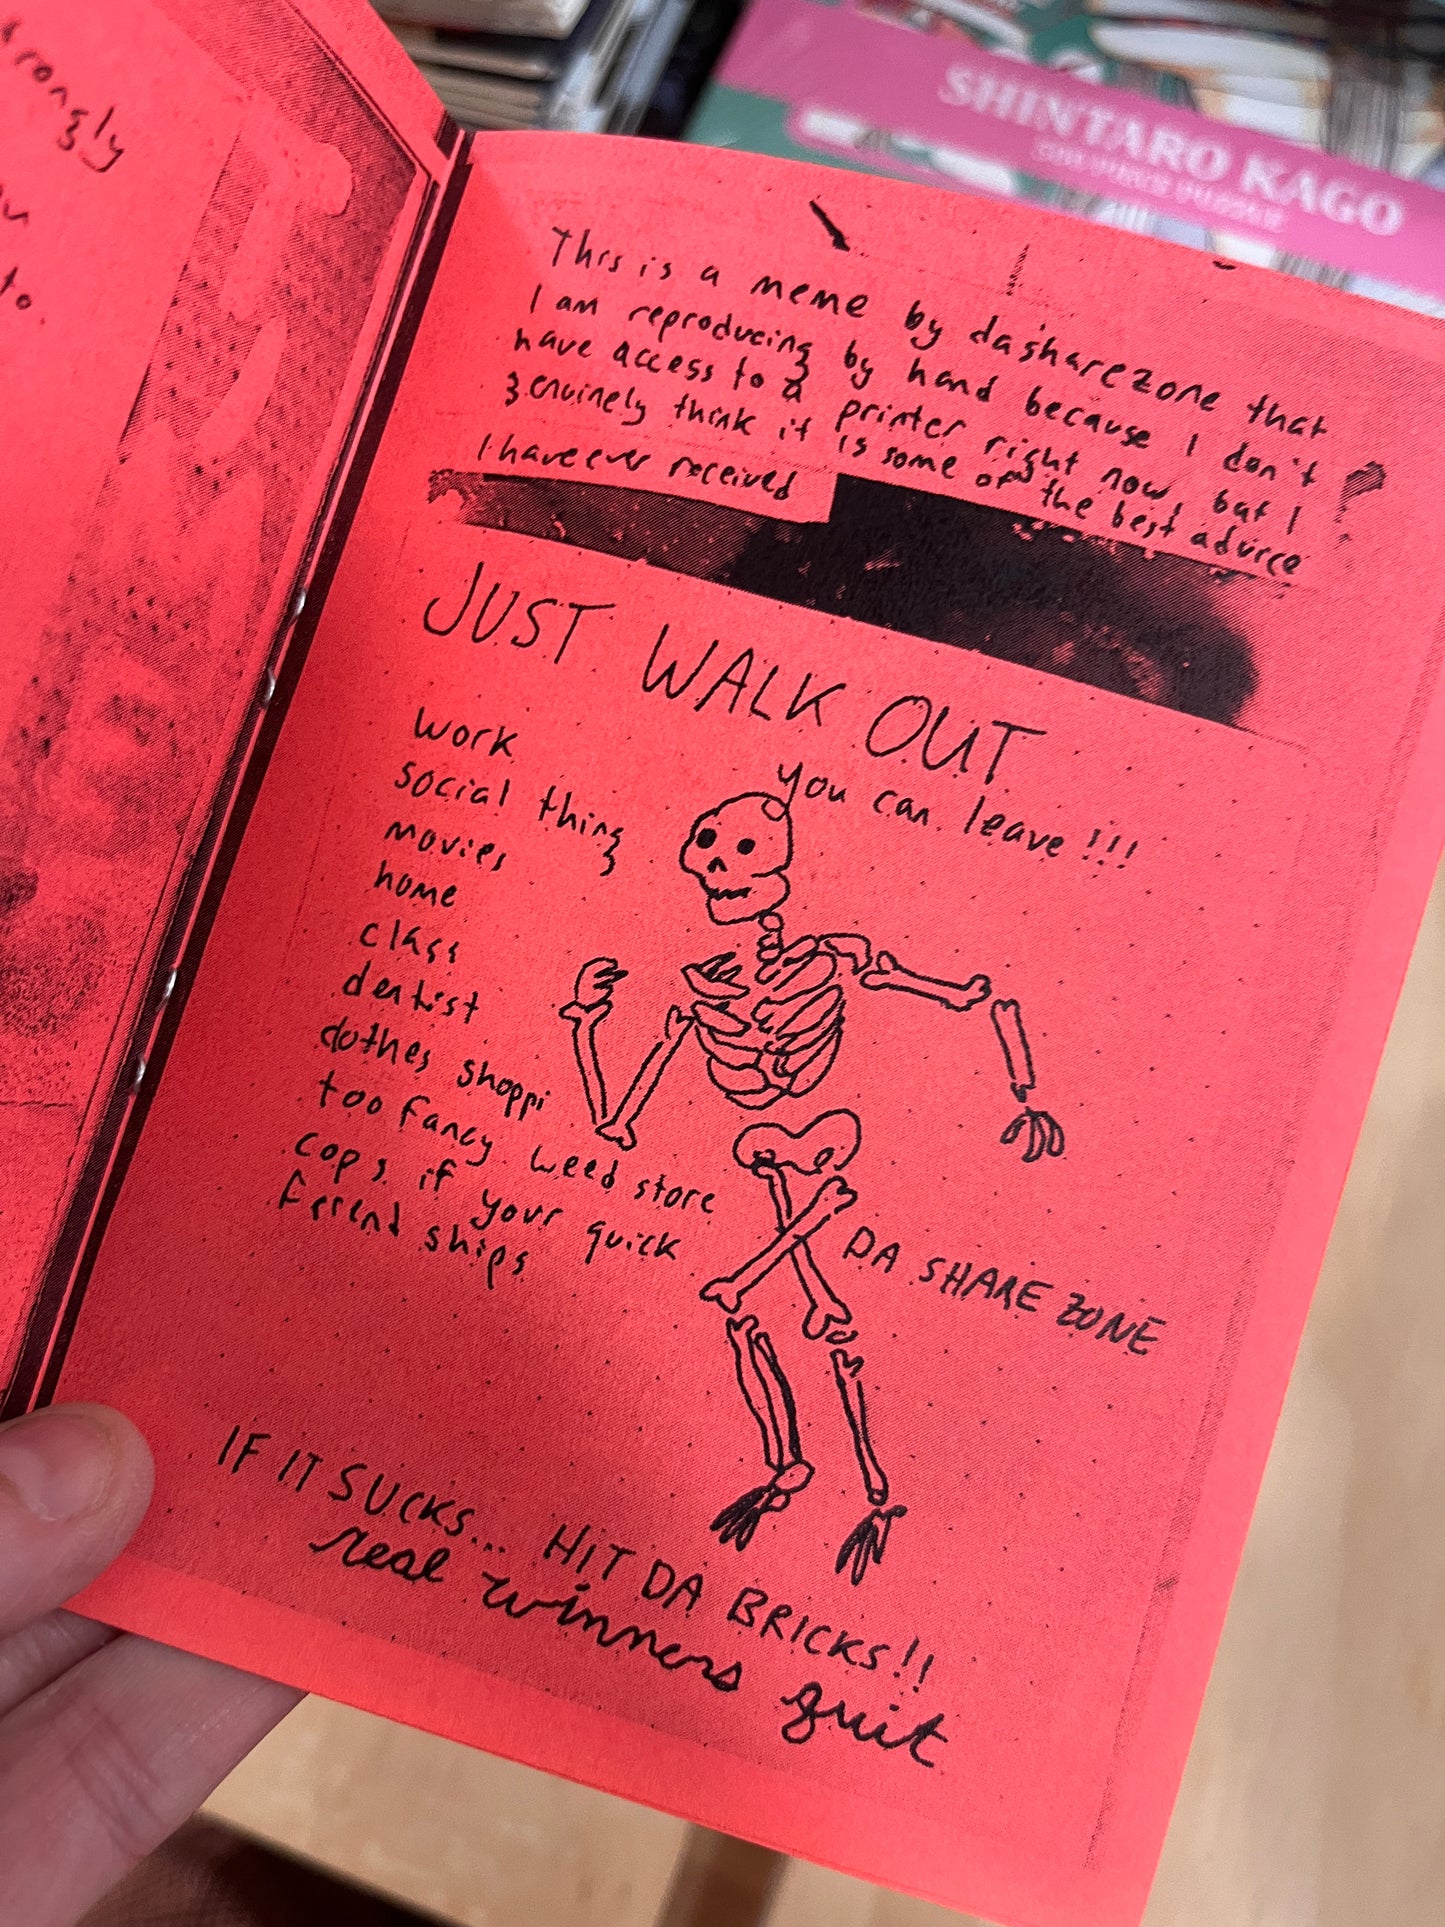 SHINTARO KAGO
rongly
to.
This is a meme by dasharezone that
I am reproducing by hand because I don't
have access to a printer right now, but I
genuinely think it is some of the best advice
I have ever received
JUST WALK OUT
you can leave!!!
work
social thing
movies
home
class
dentist
clothes shoppi
too fancy weed store
cops if your quick
friend ships
DA SHARE ZONE
IF IT SUCKS... HIT DA BRICKS!!
real winners quit